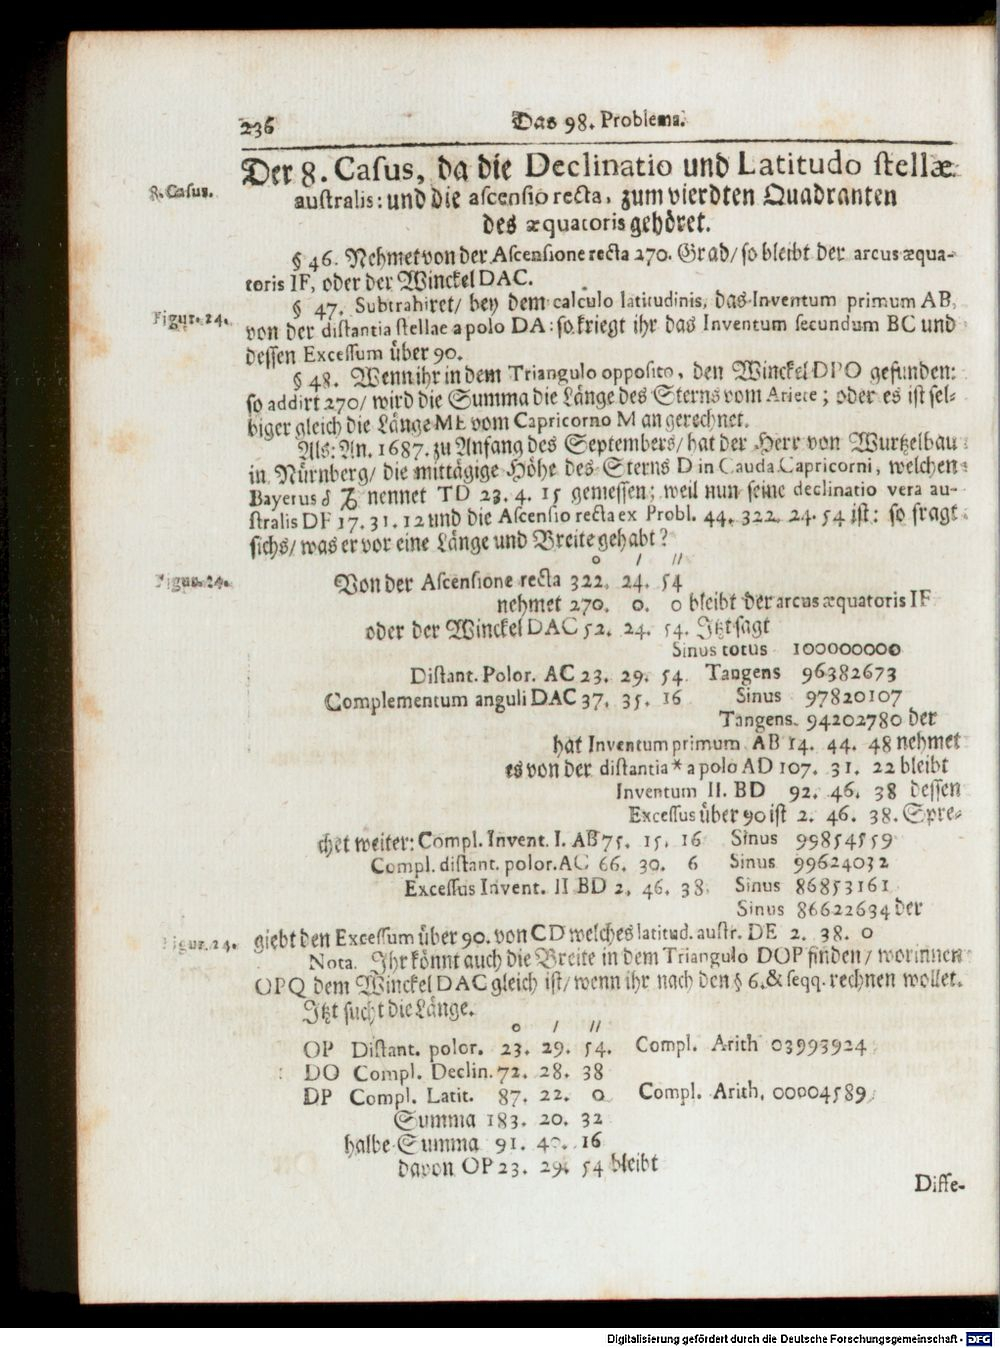 236
Das 98. Problema.
Der 8. Casus, da die Declinatio und Latitudo stellæ
8. Casus.
australis: und die ascensio recta, zum vierdten Quadranten
des æquatoris gehöret.
§ 46. Nehmet von der Ascensione recta 270. Grad/ so bleibt der arcus æqua-
toris IF, oder der Winckel DAC.
§ 47. Subtrahiret/ bey dem calculo latitudinis, das Inventum primum AB,
Figur. 24.
von der distantia stellae a polo DA: so kriegt ihr das Inventum secundum BC und
dessen Excessum über 90.
§ 48. Wenn ihr in dem Triangulo opposito, den Winckel DPO gefunden:
so addirt 270/ wird die Summa die Länge des Sterns vom Ariete; oder es ist sel-
biger gleich die Länge ME vom Capricorno M an gerechnet.
Als: An. 1687. zu Anfang des Septembers/ hat der Herr von Wurtzelbau
in Nürnberg/ die mittägige Höhe des Sterns D in Cauda Capricorni, welchen
Bayerus δ ♑ nennet TD 23. 4. 15 gemessen; weil nun seine declinatio vera au-
stralis DF 17. 31. 12 und die Ascensio recta ex Probl. 44. 322. 24. 54 ist: so fragt
sichs/ was er vor eine Länge und Breite gehabt?
o / //
Figur. 24.
Von der Ascensione recta 322. 24. 54
nehmet 270. 0. 0 bleibt der arcus æquatoris IF
oder der Winckel DAC 52. 24. 54. Jtzt sagt
Sinus totus 100000000
Distant. Polor. AC 23. 29. 54. Tangens 96382673
Complementum anguli DAC 37. 35. 16 Sinus 97820107
Tangens. 94202780 der
hat Inventum primum AB 14. 44. 48 nehmet
es von der distantia * a polo AD 107. 31. 22 bleibt
Inventum II. BD 92. 46. 38 dessen
Excessus über 90 ist 2. 46. 38. Spre-
chet weiter: Compl. Invent. I. AB 75. 15. 16 Sinus 99854559
Compl. distant. polor. AC 66. 30. 6 Sinus 99624032
Excessus Invent. II BD 2. 46. 38 Sinus 86853161
Sinus 86622634 der
Figur. 24.
giebt den Excessum über 90. von CD welches latitud. austr. DE 2. 38. 0
Nota. Jhr könnt auch die Breite in dem Triangulo DOP finden/ worinnen
OPQ dem Winckel DAC gleich ist/ wenn ihr nach den § 6. & seqq. rechnen wollet.
Jtzt sucht die Länge.
o / //
OP Distant. polor. 23. 29. 54. Compl. Arith 03993924
DO Compl. Declin. 72. 28. 38
DP Compl. Latit. 87. 22. 0 Compl. Arith. 00004589
Summa 183. 20. 32
halbe Summa 91. 40. 16
davon OP 23. 29. 54 bleibt
Diffe-
Digitalisierung gefördert durch die Deutsche Forschungsgemeinschaft - DFG